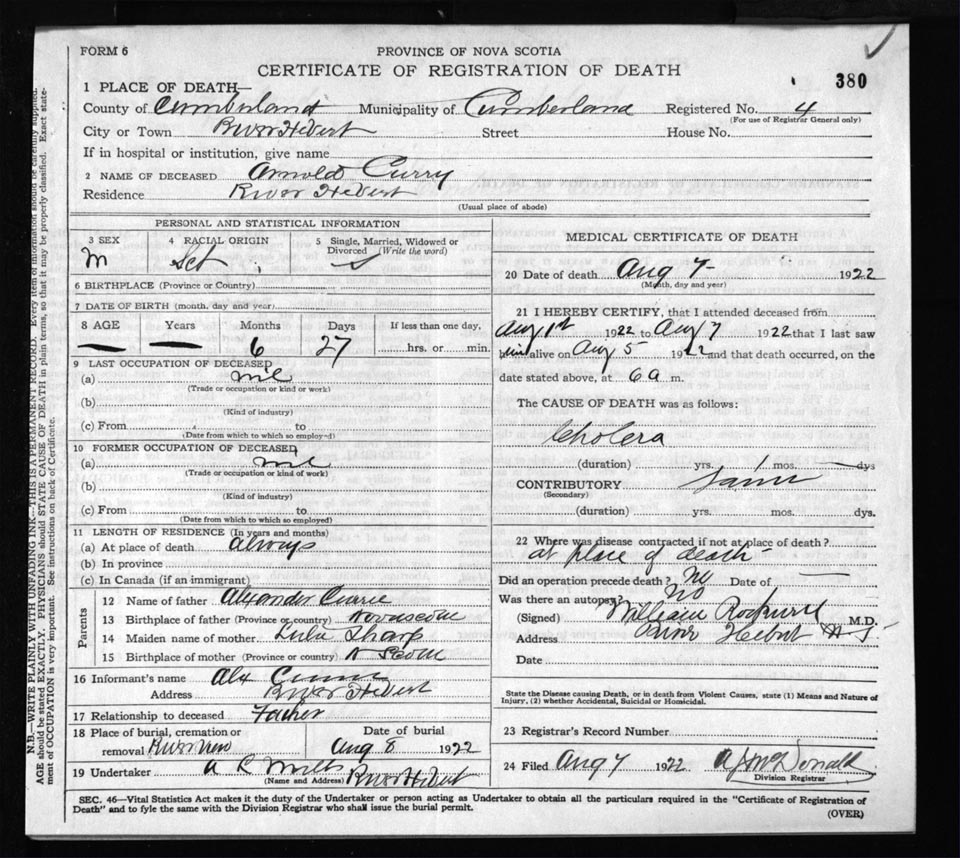 FORM 6
PROVINCE OF NOVA SCOTIA
CERTIFICATE OF REGISTRATION OF DEATH
380
1 PLACE OF DEATH—
County of Cumberland Municipality of Cumberland Registered No. 4
(For use of Registrar General only)
City or Town River Hebert Street House No.
If in hospital or institution, give name
2 NAME OF DECEASED Arnold Curry
Residence River Hebert
(Usual place of abode)
PERSONAL AND STATISTICAL INFORMATION
3 SEX 4 RACIAL ORIGIN 5 Single, Married, Widowed or Divorced (Write the word)
M Sct S
6 BIRTHPLACE (Province or Country)
7 DATE OF BIRTH (month, day and year)
8 AGE Years Months Days If less than one day,
— — 6 27 hrs. or min.
9 LAST OCCUPATION OF DECEASED
(a)
(Trade or occupation or kind or work)
(b)
(Kind of industry)
(c) From to
(Date from which to which so employed)
10 FORMER OCCUPATION OF DECEASED
(a)
(Trade or occupation or kind of work)
(b)
(Kind of industry)
(c) From to
(Date from which to which so employed)
11 LENGTH OF RESIDENCE (In years and months)
(a) At place of death always
(b) In province
(c) In Canada (if an immigrant)
Parents
12 Name of father Alexander Currie
13 Birthplace of father (Province or country)
14 Maiden name of mother Lulu Sharp
15 Birthplace of mother (Province or country) N Scotia
16 Informant's name Alex Currie
Address River Hebert
17 Relationship to deceased Father
18 Place of burial, cremation or removal Date of burial
Aug 8 1922
19 Undertaker River Hebert
(Name and Address)
MEDICAL CERTIFICATE OF DEATH
20 Date of death Aug 7 1922
(Month, day and year)
21 I HEREBY CERTIFY, that I attended deceased from
Aug 1st 1922 to Aug 7 1922 that I last saw
him alive on Aug 5 1922 and that death occurred, on the
date stated above, at 6 a m.
The CAUSE OF DEATH was as follows:
Cholera
(duration) yrs. 1 mos. — dys
CONTRIBUTORY
(Secondary)
(duration) yrs. mos. dys.
22 Where was disease contracted if not at place of death?
at place of death
Did an operation precede death? No Date of —
Was there an autopsy? No
(Signed) William Rockwell M.D.
Address River Hebert N S
Date
State the Disease causing Death, or in death from Violent Causes, state (1) Means and Nature of Injury, (2) whether Accidental, Suicidal or Homicidal.
23 Registrar's Record Number
24 Filed Aug 7 1922 McDonald
Division Registrar
SEC. 46—Vital Statistics Act makes it the duty of the Undertaker or person acting as Undertaker to obtain all the particulars required in the "Certificate of Registration of
Death" and to fyle the same with the Division Registrar who shall issue the burial permit.
(OVER)
N.B.—WRITE PLAINLY WITH UNFADING INK—THIS IS A PERMANENT RECORD. Every item of information should be carefully supplied.
AGE should be stated EXACTLY. PHYSICIANS should STATE CAUSE OF DEATH in plain terms, so that it may be properly classified. Exact statement of OCCUPATION is very important. See instructions on back of Certificate.